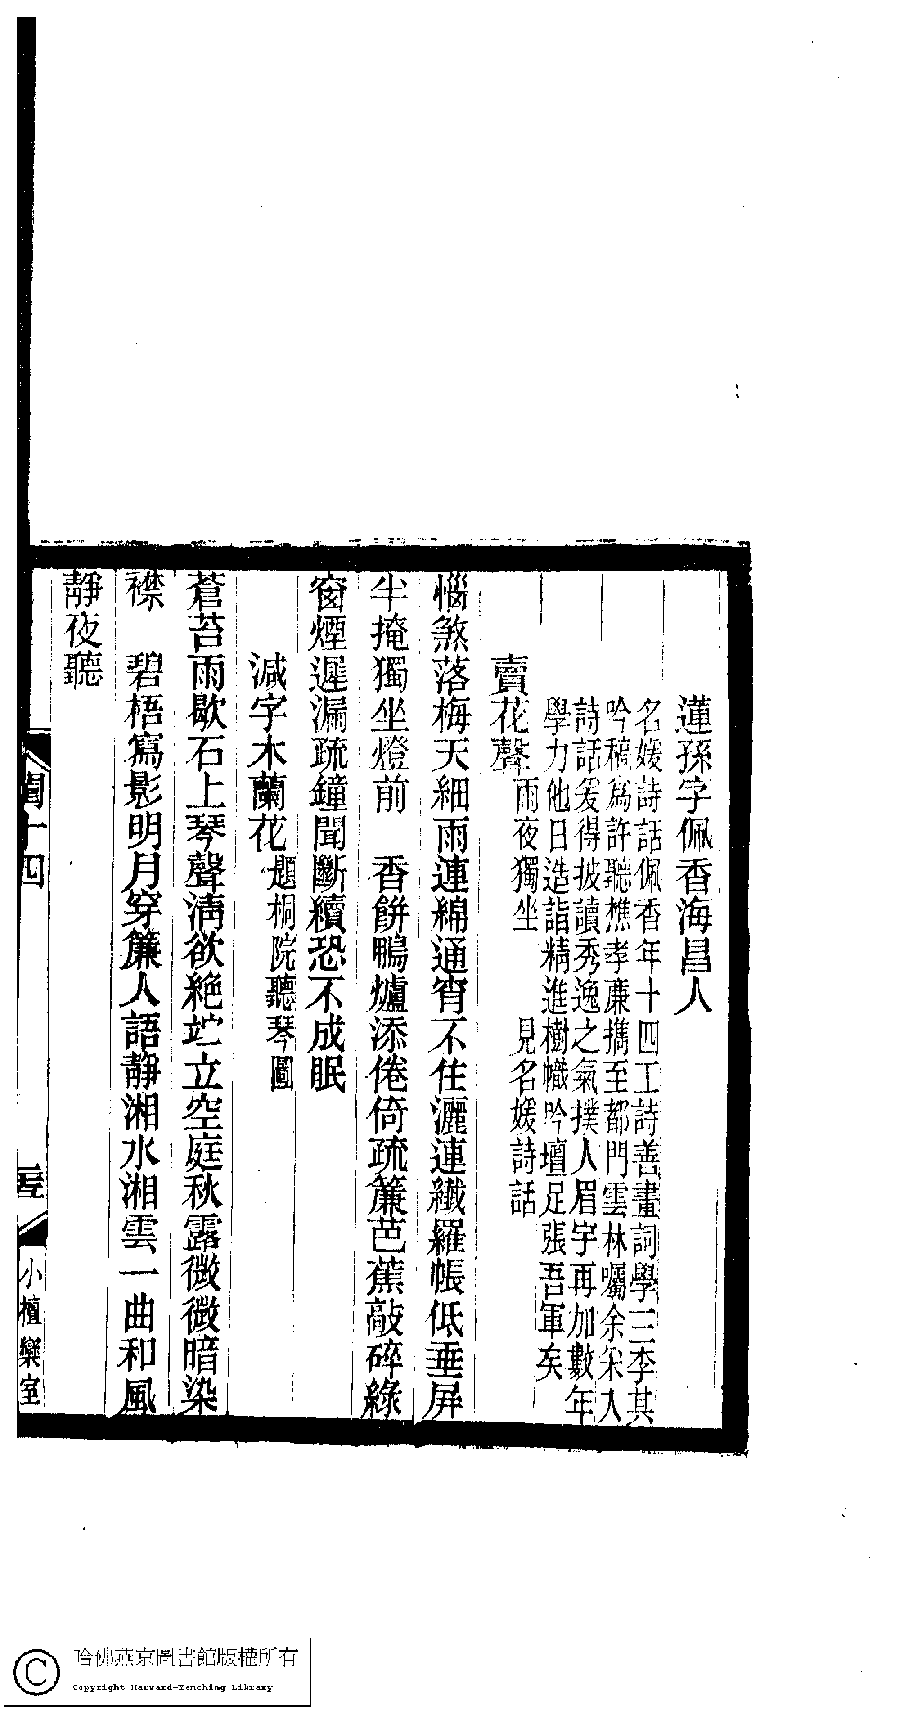 蓮孫字佩香海昌人
名媛詩話佩香年十四工詩善畫詞學三李其
吟稿為許聽樵孝廉攜至都門雲林囑余采入
詩話爰得披讀秀逸之氣撲人眉宇再加數年
學力他日造詣精進樹幟吟壇足張吾軍矣
賣花聲 雨夜獨坐 見名媛詩話
惱煞落梅天細雨連綿通宵不住灑連纖羅帳低垂屏
半掩獨坐燈前 香餅鴨爐添倦倚疏簾芭蕉敲碎綠
窗煙遲漏疏鐘聞斷續恐不成眠
減字木蘭花 題桐院聽琴圖
蒼苔雨歇石上琴聲淸欲絕竚立空庭秋露微微暗染
襟 碧梧寫影明月穿簾人語靜湘水湘雲一曲和風
靜夜聽
閨十四
小檀欒室
哈佛燕京圖書館版權所有
Copyright Harvard-Yenching Library